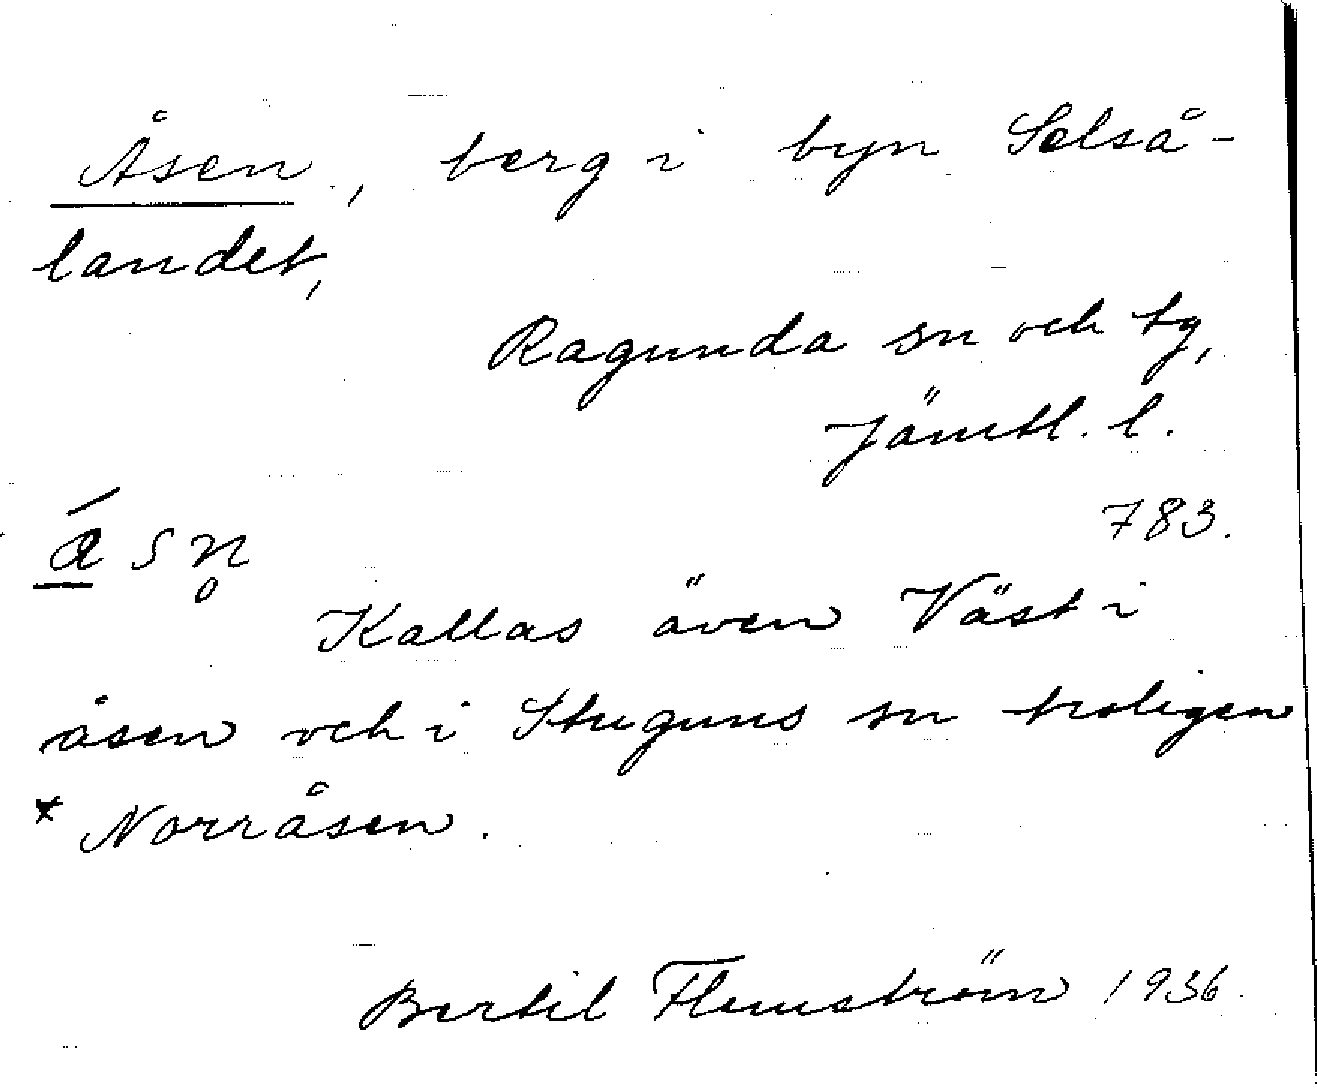 Åsen, berg i byn Selså-
landet,
Ragunda sn och tg,
Jämtl. l.
783.
á s n̥
Kallas även Väst i
åsen och i Stuguns sn troligen
* Norråsen.
Bertil Flemström 1936.